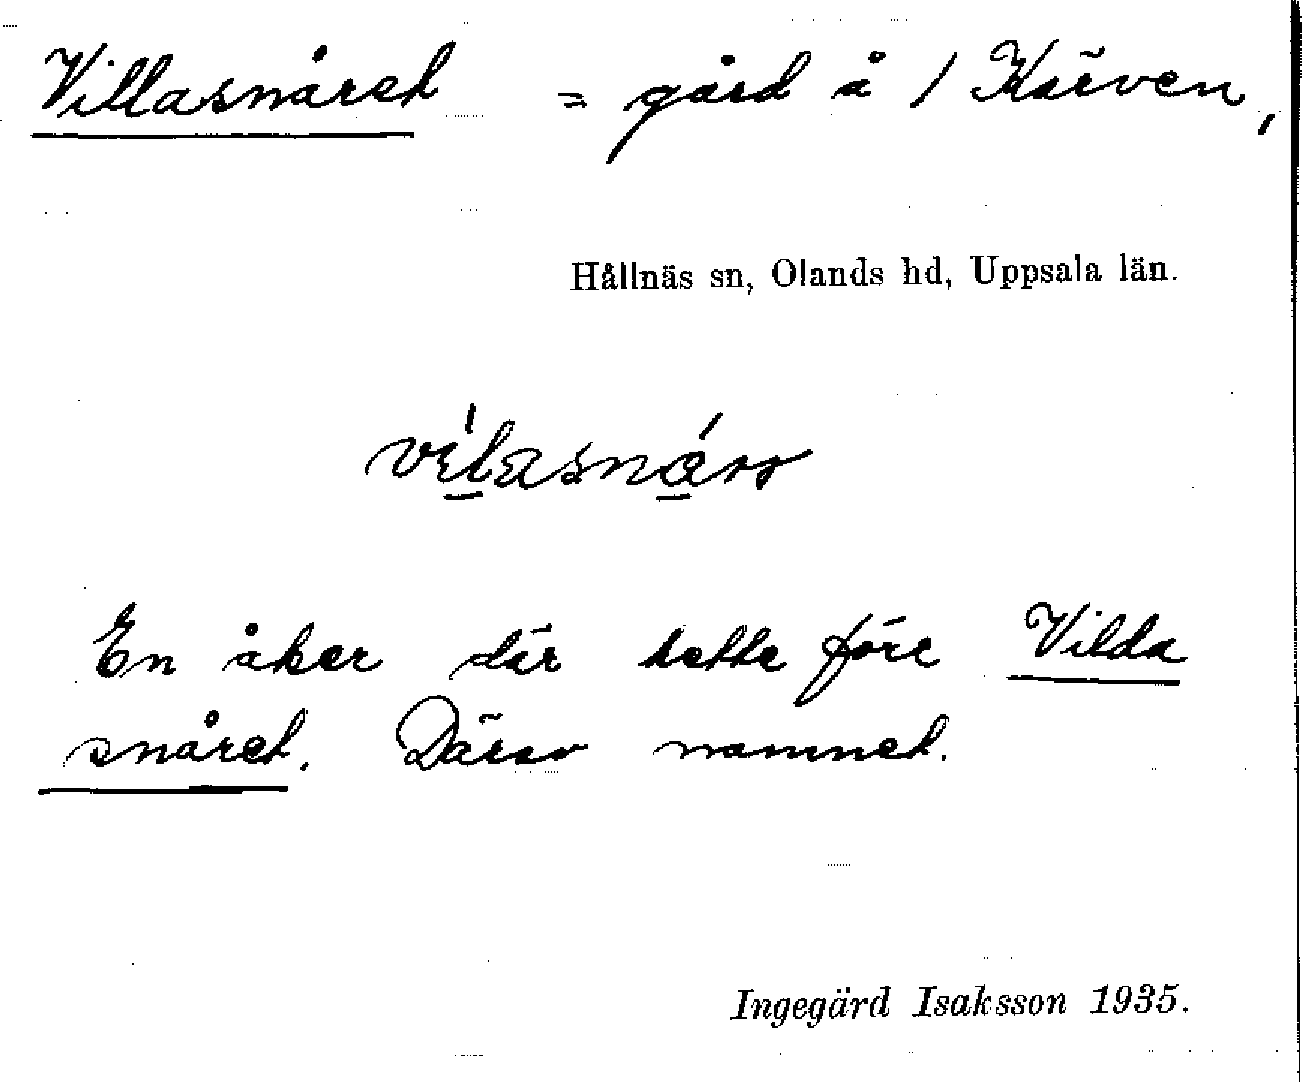 Villasnåret = gård å 1 Kärven,
Hållnäs sn, Olands hd, Uppsala län.
En åker där hette före Vilda
snåret. Därav namnet.
Ingegärd Isaksson 1935.